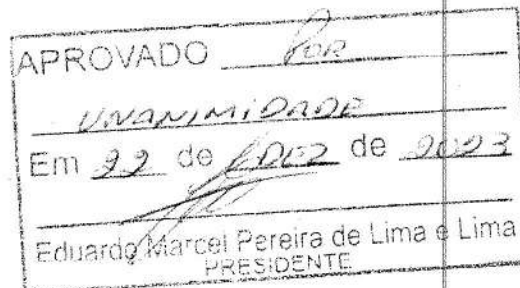 APROVADO POR
UNANIMIDADE
Em 22 de DEZ de 2023
Eduardo Marcel Pereira de Lima e Lima
PRESIDENTE